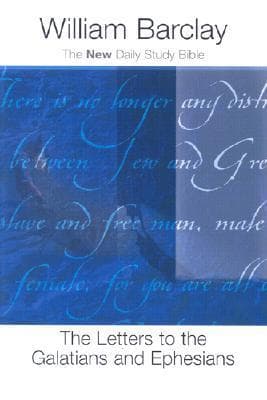 William Barclay
The New Daily Study Bible
There is no longer any distin
between Jew and Gre
slave and free man, male
female, for you are all o
The Letters to the
Galatians and Ephesians